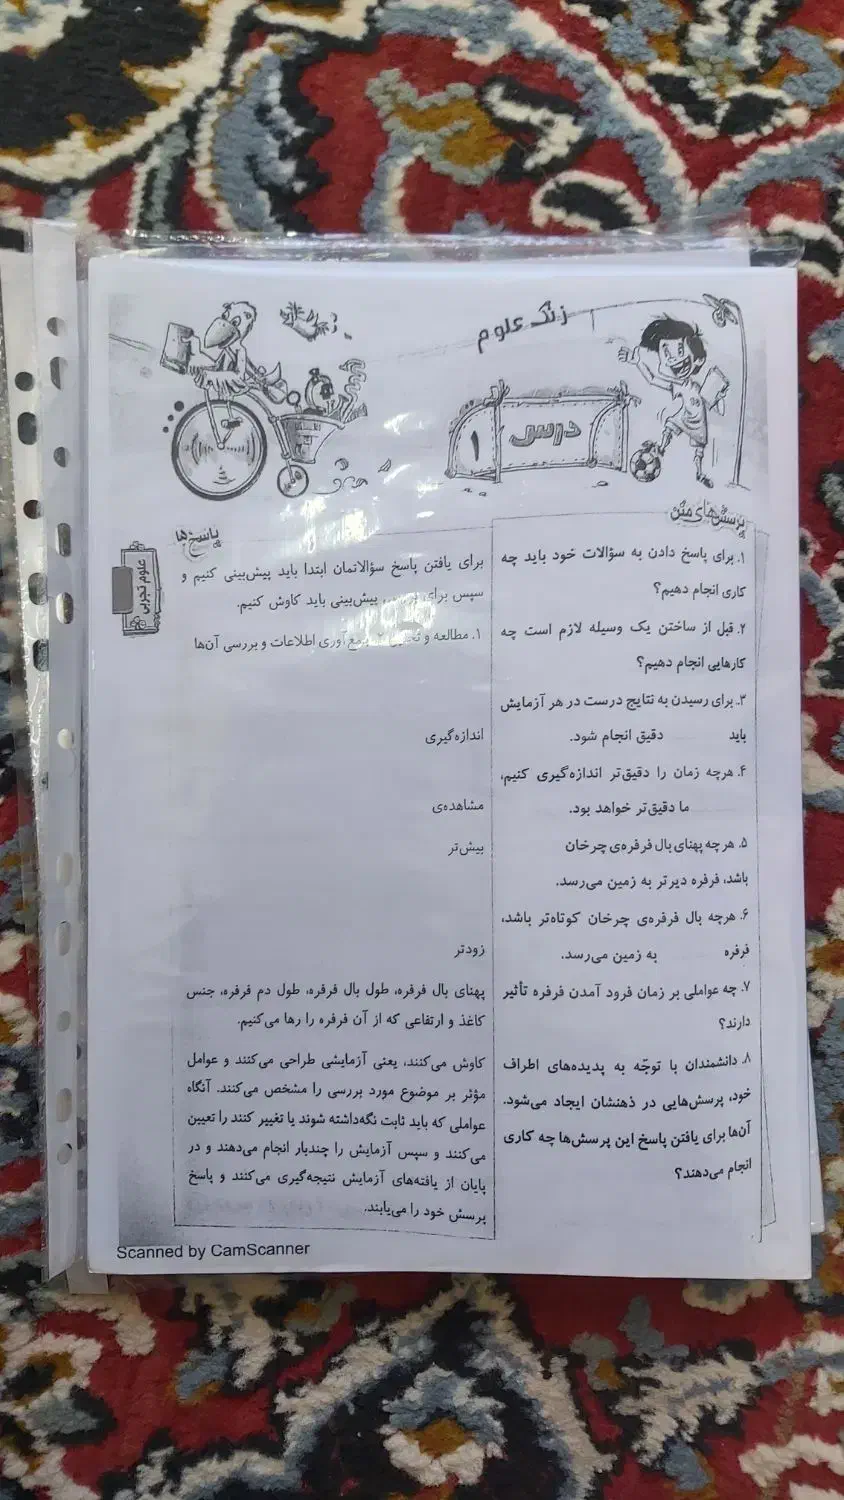 زنگ علوم
درس ۱
پرسش‌های متن
۱. برای پاسخ دادن به سؤالات خود باید چه
کاری انجام دهیم؟
۲. قبل از ساختن یک وسیله لازم است چه
کارهایی انجام دهیم؟
۳. برای رسیدن به نتایج درست در هر آزمایش
باید دقیق انجام شود.
۴. هرچه زمان را دقیق‌تر اندازه‌گیری کنیم،
ما دقیق‌تر خواهد بود.
۵. هرچه پهنای بال فرفره‌ی چرخان
باشد، فرفره دیرتر به زمین می‌رسد.
۶. هرچه بال فرفره‌ی چرخان کوتاه‌تر باشد،
فرفره به زمین می‌رسد.
۷. چه عواملی بر زمان فرود آمدن فرفره تأثیر
دارند؟
۸. دانشمندان با توجّه به پدیده‌های اطراف
خود، پرسش‌هایی در ذهنشان ایجاد می‌شود.
آن‌ها برای یافتن پاسخ این پرسش‌ها چه کاری
انجام می‌دهند؟
پاسخ‌ها
برای یافتن پاسخ سؤالاتمان ابتدا باید پیش‌بینی کنیم و
سپس برای پیش‌بینی باید کاوش کنیم.
۱. مطالعه و ۲. جمع‌آوری اطلاعات و بررسی آن‌ها
اندازه‌گیری
مشاهده‌ی
بیش‌تر
زودتر
پهنای بال فرفره، طول بال فرفره، طول دم فرفره، جنس
کاغذ و ارتفاعی که از آن فرفره را رها می‌کنیم.
کاوش می‌کنند، یعنی آزمایشی طراحی می‌کنند و عوامل
مؤثر بر موضوع مورد بررسی را مشخص می‌کنند. آنگاه
عواملی که باید ثابت نگه‌داشته شوند یا تغییر کنند را تعیین
می‌کنند و سپس آزمایش را چندبار انجام می‌دهند و در
پایان از یافته‌های آزمایش نتیجه‌گیری می‌کنند و پاسخ
پرسش خود را می‌یابند.
علوم تجربی
Scanned by CamScanner